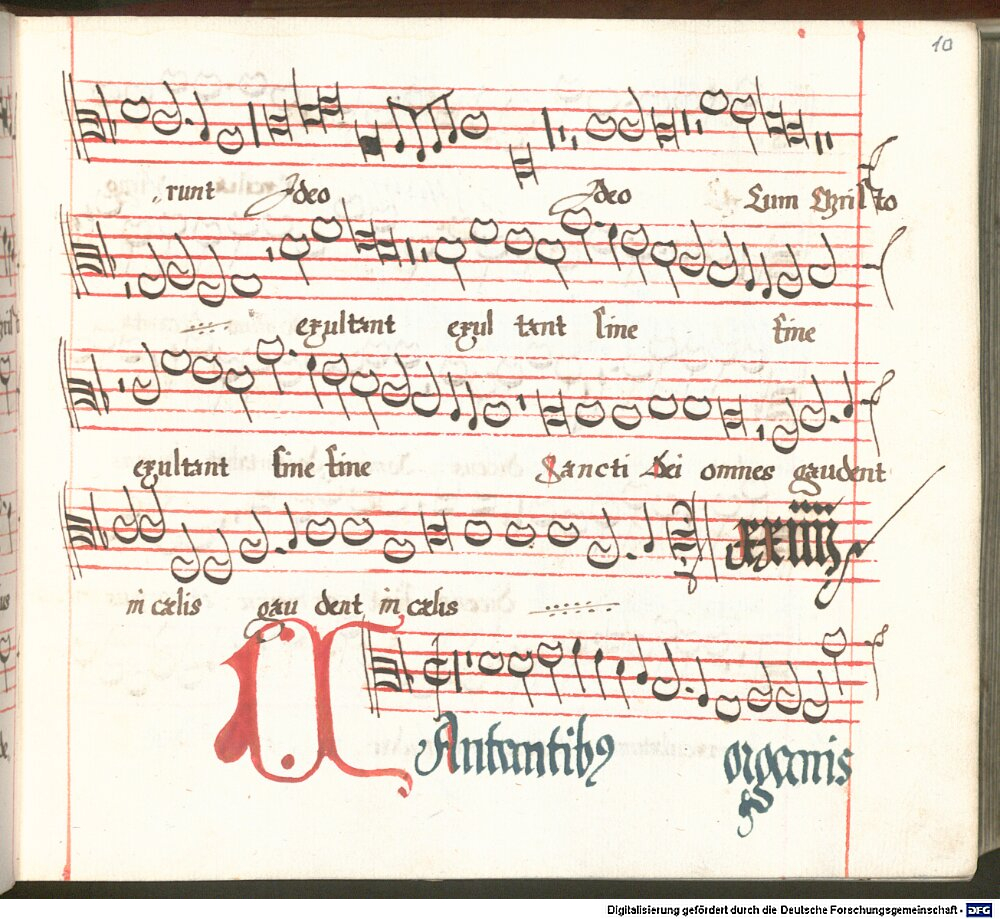 10
runt Ideo Ideo Cum Christo
exultant exul tant sine fine
exultant sine fine Sancti Dei omnes gaudent
in cælis gau dent in cælis
xxiiii
CAntantibꝰ organis
Digitalisierung gefördert durch die Deutsche Forschungsgemeinschaft - DFG